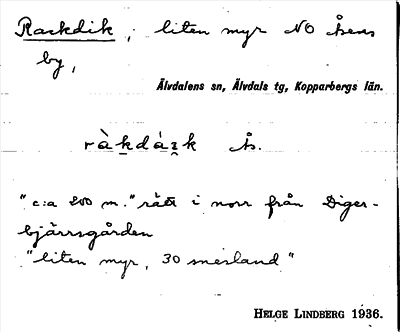 Rackdik, liten myr NO Åsens
by,
Älvdalens sn, Älvdals tg, Kopparbergs län.
Ås.
"c:a 200 m." rätt i norr från Diger-
bjärrsgården
"liten myr, 30 snesland"
HELGE LINDBERG 1936.